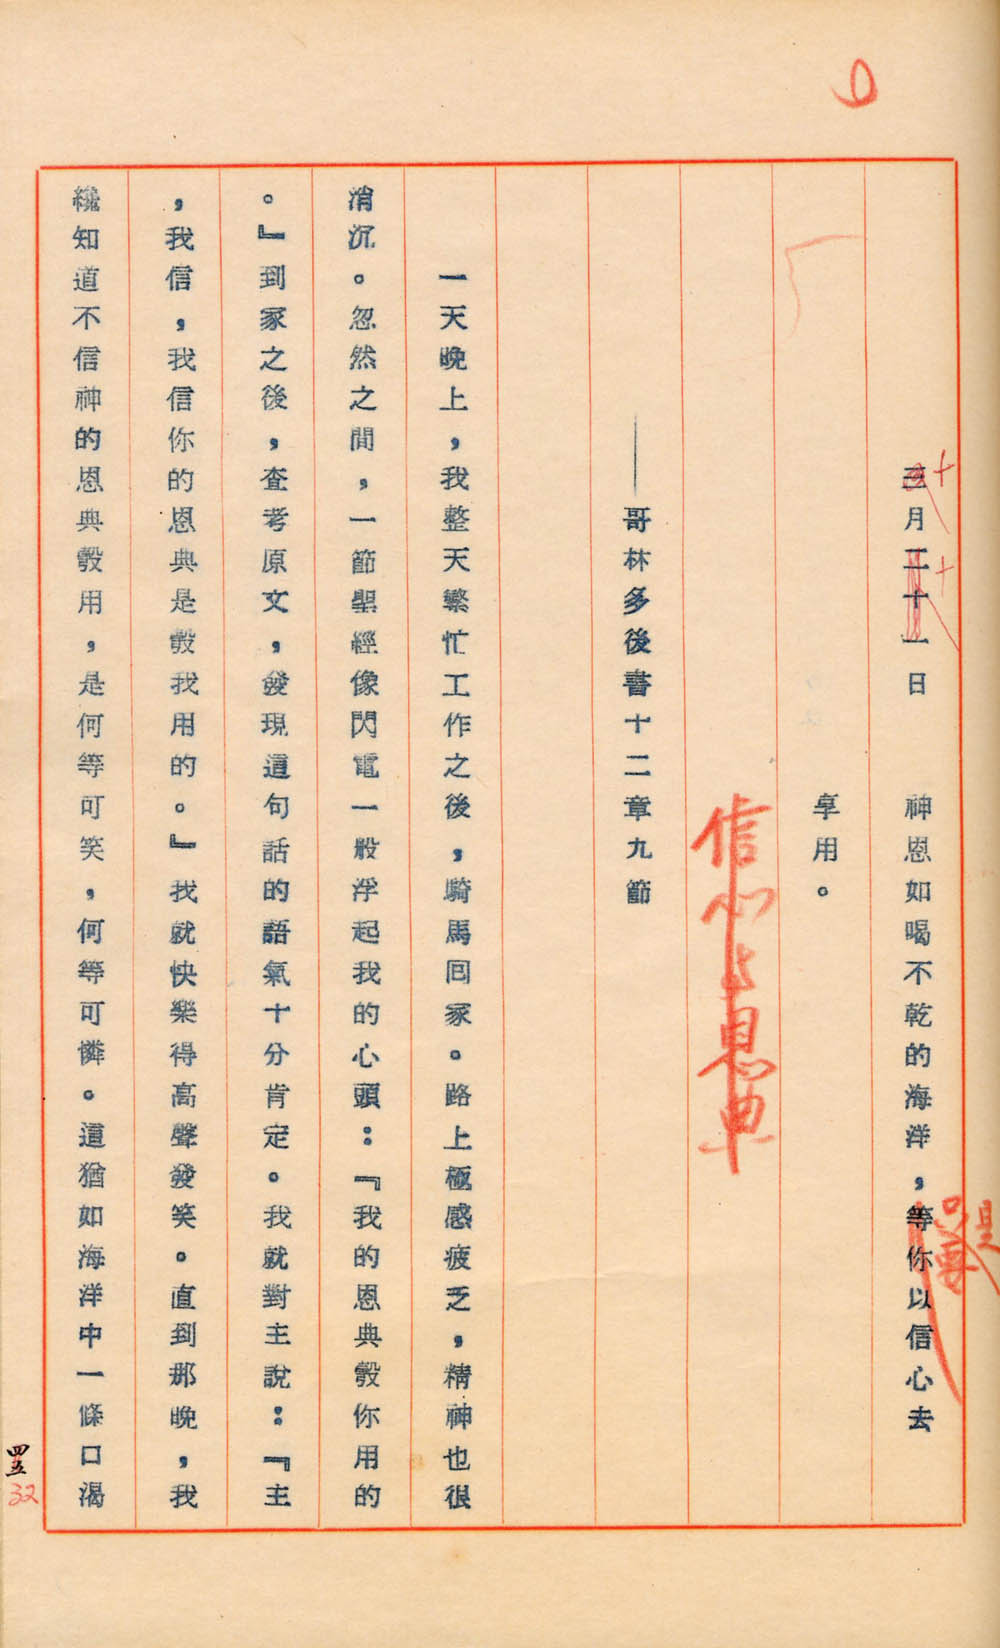 三月二十一日　神恩如喝不乾的海洋，等你以信心去
享用。
信心與恩典
——哥林多後書十二章九節
一天晚上，我整天繁忙工作之後，騎馬回家。路上極感疲乏，精神也很
消沉。忽然之間，一節聖經像閃電一般浮起我的心頭：『我的恩典彀你用的
。』到家之後，查考原文，發現這句話的語氣十分肯定。我就對主說：『主
，我信，我信你的恩典是彀我用的。』我就快樂得高聲發笑。直到那晚，我
纔知道不信神的恩典彀用，是何等可笑，何等可憐。這猶如海洋中一條口渴
十
十
題
32